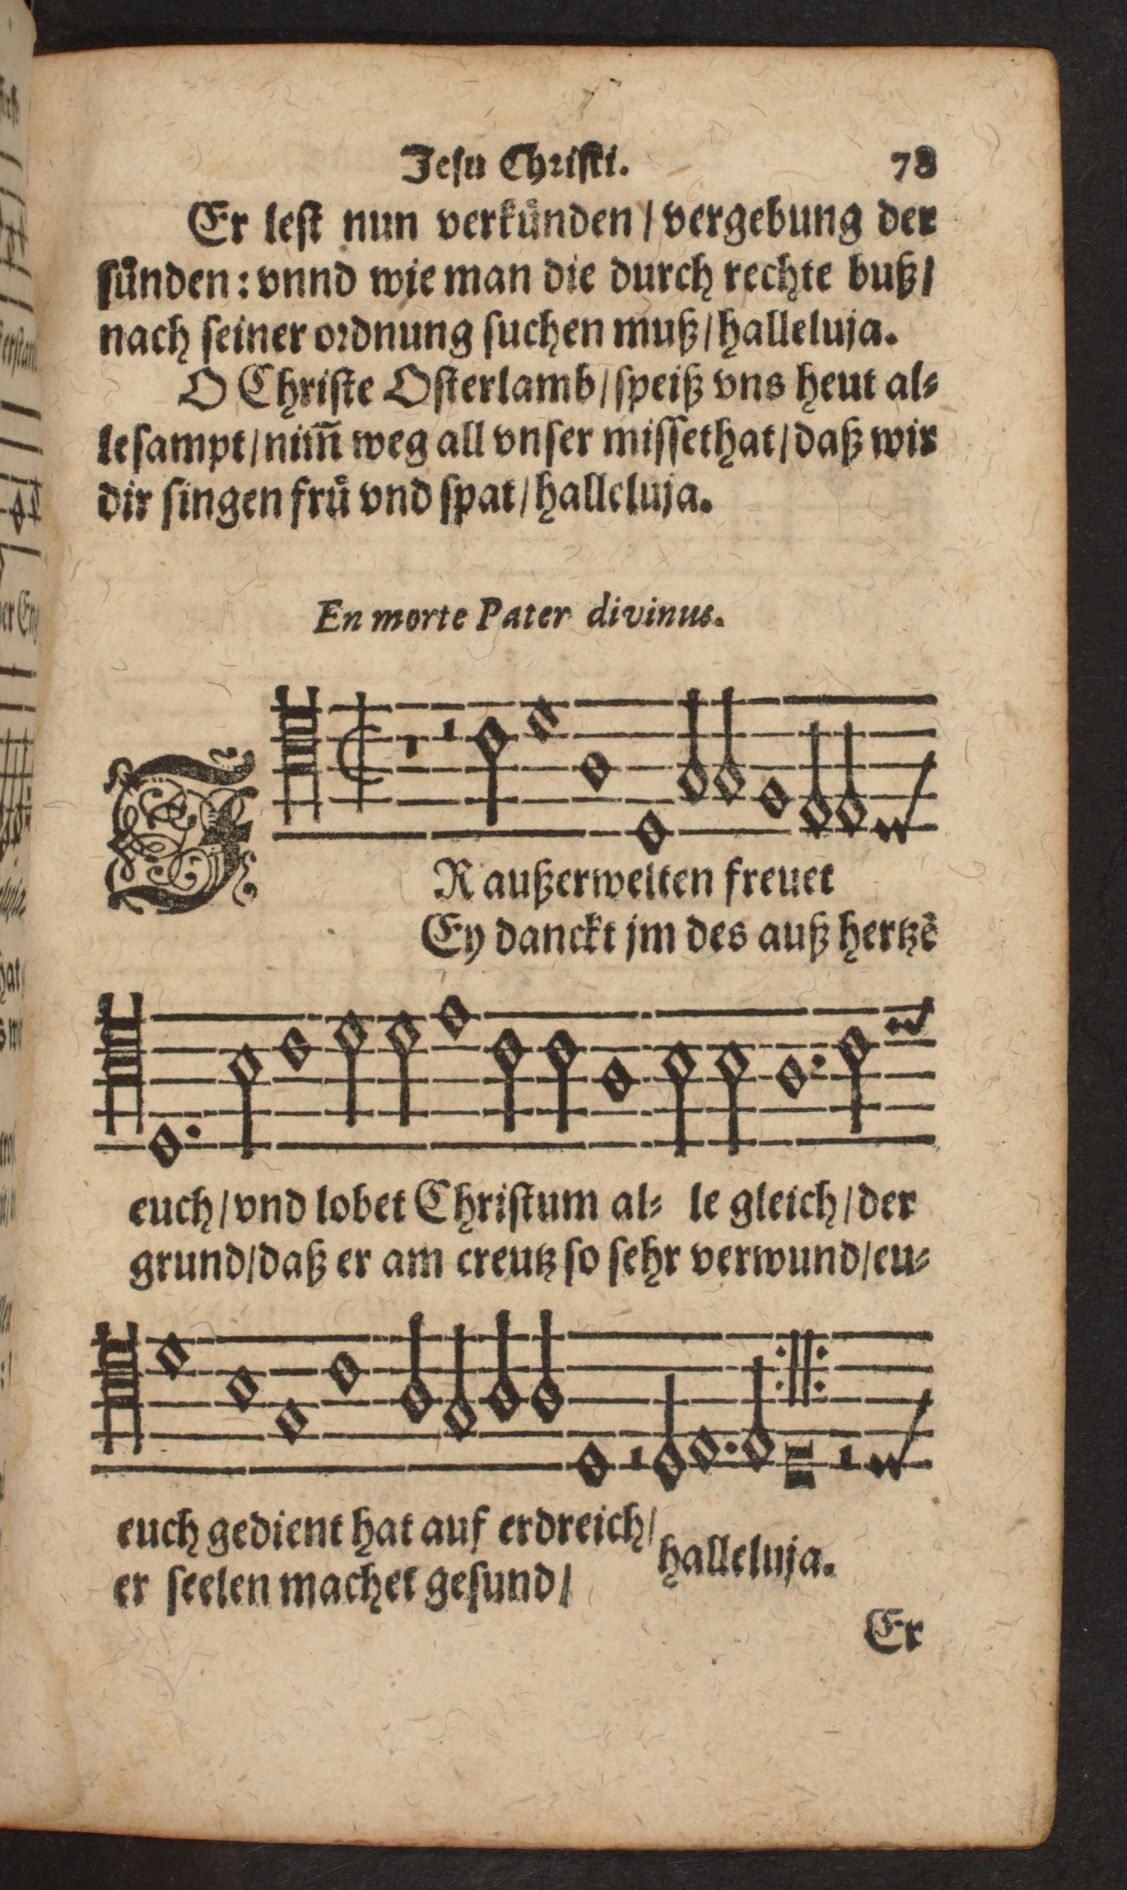 Jesu Christi. 78
Er lest nun verkuͤnden / vergebung der
suͤnden: vnnd wie man die durch rechte buß /
nach seiner ordnung suchen muß / halleluja.
O Christe Osterlamb / speiß vns heut al⸗
le sampt / nim̃ weg all vnser missethat / daß wir
dir singen fruͤ vnd spat / halleluja.
En morte Pater divinus.
IR außerwelten freuet
Ey danckt jm des auß hertzẽ
euch / vnd lobet Christum al⸗ le gleich / der
grund / daß er am creutz so sehr verwund / eu⸗
euch gedient hat auf erdreich /
er seelen machet gesund /
halleluja.
Er